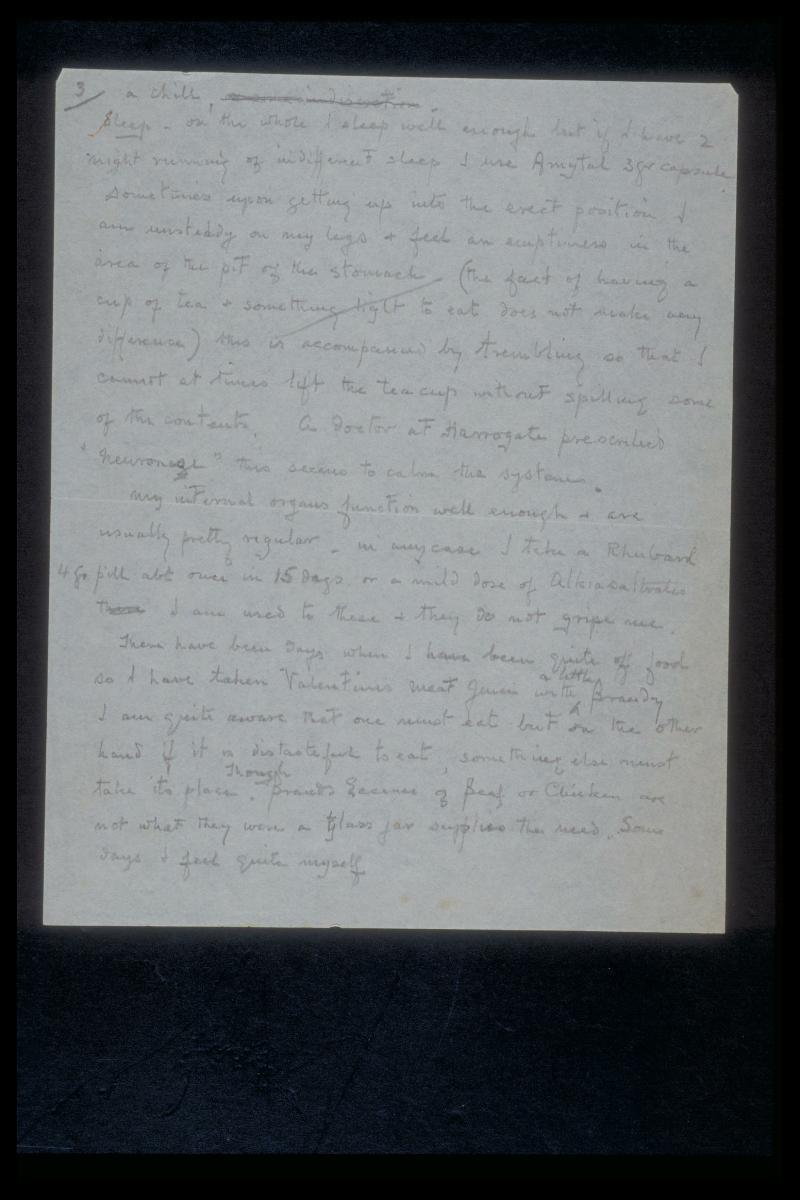 3 a chill,
Sleep - on the whole I sleep well enough but if I have 2
night running of indifferent sleep I use Amytal 3gr capsule.
Sometimes upon getting up into the erect position I
am unsteady on my legs + feel an emptiness in the
area of the pit of the stomach (the fact of having a
cup of tea + something light to eat does not make any
difference) this is accompanied by trembling so that I
cannot at times lift the tea cup without spilling some
of the contents. A doctor at Harrogate prescribed
this seems to calm the system.
My internal organs function well enough + are
usually pretty regular - in any case I take a Rhubarb
4 gr pill abt once in 15 days or a mild dose of
I am used to these + they do not gripe me.
There have been days when I have been quite off food
so I have taken Valentines meat Juice with a little Brandy
I am quite aware that one must eat but on the other
hand if it is distasteful to eat, something else must
take its place. Though Brands Essence of Beef or Chicken are
not what they were a Glass jar supplies the need. Some
days I feel quite myself